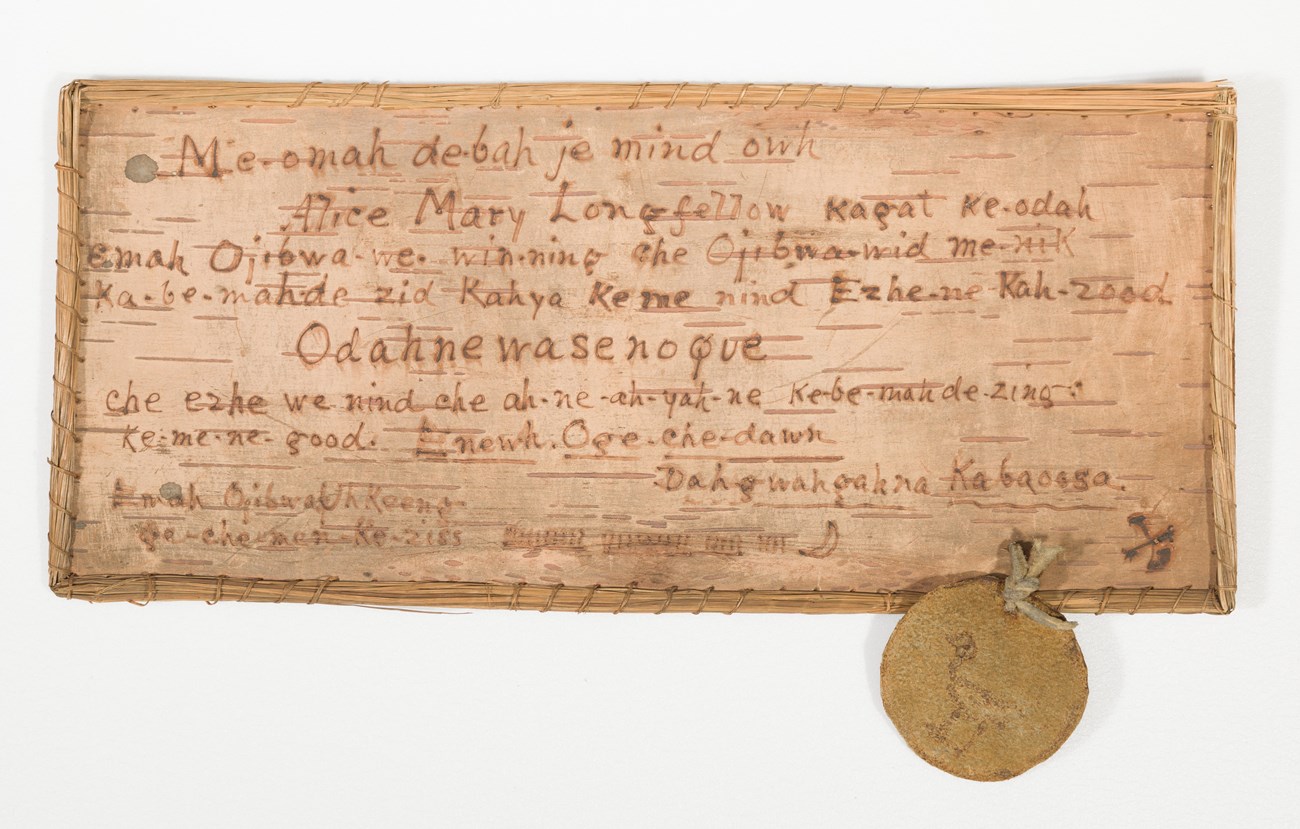 Me-omah de-bah je mind owh
Alice Mary Longfellow Kagat Ke-odah
emah Ojibwa-we- win-ning che Ojibwa-wid me-niK
Ka-be-mahde zid Kahya Keme nind Ezhe-ne-Kah-zood
Odahnewasenoque
che ezhe we nind che ah-ne-ah-yah-ne Ke-be-mah de-zing:
Ke-me-ne-good. Enewh. Oge-che-dawn
Dahgwahgahna Kabaossa.
Emah OjibwaUhKeeng-
ge-che-mon-Ke-ziss